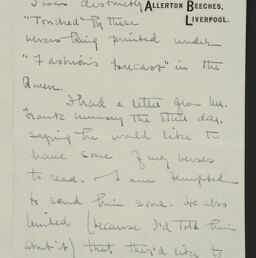 I was distinctly
ALLERTON BEECHES,
LIVERPOOL.
"Touched" by these
verses being printed under
"Fashion's forecast" in the
Queen.
I had a letter from Mr.
Frank Munsey the other day.
saying he would like to
have some of my verses
to read. I am tempted
to send him some. He also
hinted (because I'd told them
about it) that they'd like to